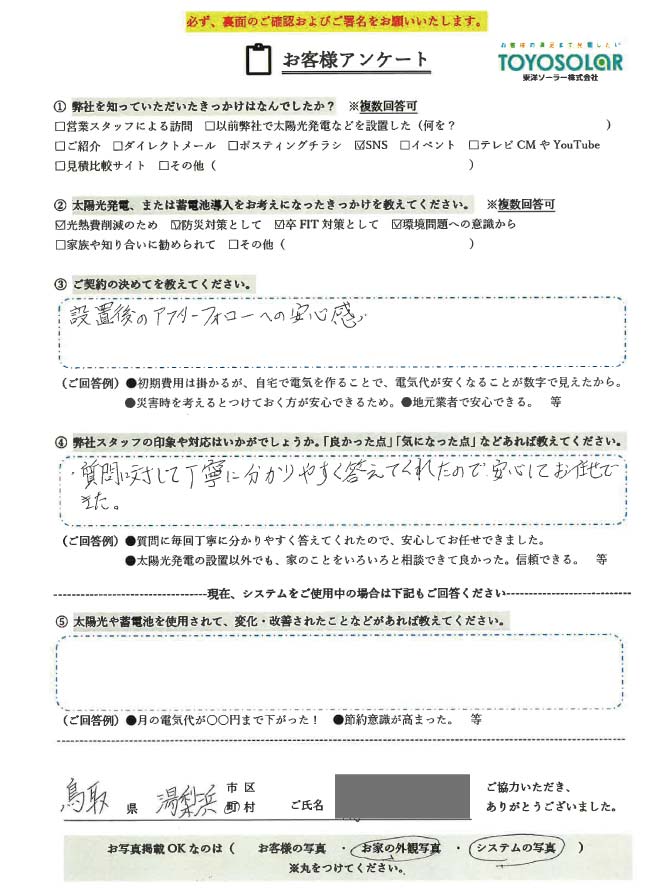 必ず、裏面のご確認およびご署名をお願いいたします。
お客様アンケート
お客様の満足まで発電したい
TOYOSOLAR
東洋ソーラー株式会社
① 弊社を知っていただいたきっかけはなんでしたか？　※複数回答可
□営業スタッフによる訪問　□以前弊社で太陽光発電などを設置した（何を？　）
□ご紹介　□ダイレクトメール　□ポスティングチラシ　☑SNS　□イベント　□テレビ CM や YouTube
□見積比較サイト　□その他（　）
② 太陽光発電、または蓄電池導入をお考えになったきっかけを教えてください。　※複数回答可
☑光熱費削減のため　☑防災対策として　☑卒 FIT 対策として　☑環境問題への意識から
□家族や知り合いに勧められて　□その他（　）
③ ご契約の決めてを教えてください。
設置後のアフターフォローへの安心感
（ご回答例）●初期費用は掛かるが、自宅で電気を作ることで、電気代が安くなることが数字で見えたから。
●災害時を考えるとつけておく方が安心できるため。●地元業者で安心できる。　等
④ 弊社スタッフの印象や対応はいかがでしょうか。「良かった点」「気になった点」などあれば教えてください。
・質問に対して丁寧に分かりやすく答えてくれたので安心してお任せで
きた。
（ご回答例）●質問に毎回丁寧に分かりやすく答えてくれたので、安心してお任せできました。
●太陽光発電の設置以外でも、家のことをいろいろと相談できて良かった。信頼できる。　等
現在、システムをご使用中の場合は下記もご回答ください
⑤ 太陽光や蓄電池を使用されて、変化・改善されたことなどがあれば教えてください。
（ご回答例）●月の電気代が〇〇円まで下がった！　●節約意識が高まった。　等
鳥取 県 湯梨浜 市 区 町 村 ご氏名
ご協力いただき、
ありがとうございました。
お写真掲載 OK なのは（　お客様の写真　・　お家の外観写真　・　システムの写真　）
※丸をつけてください。